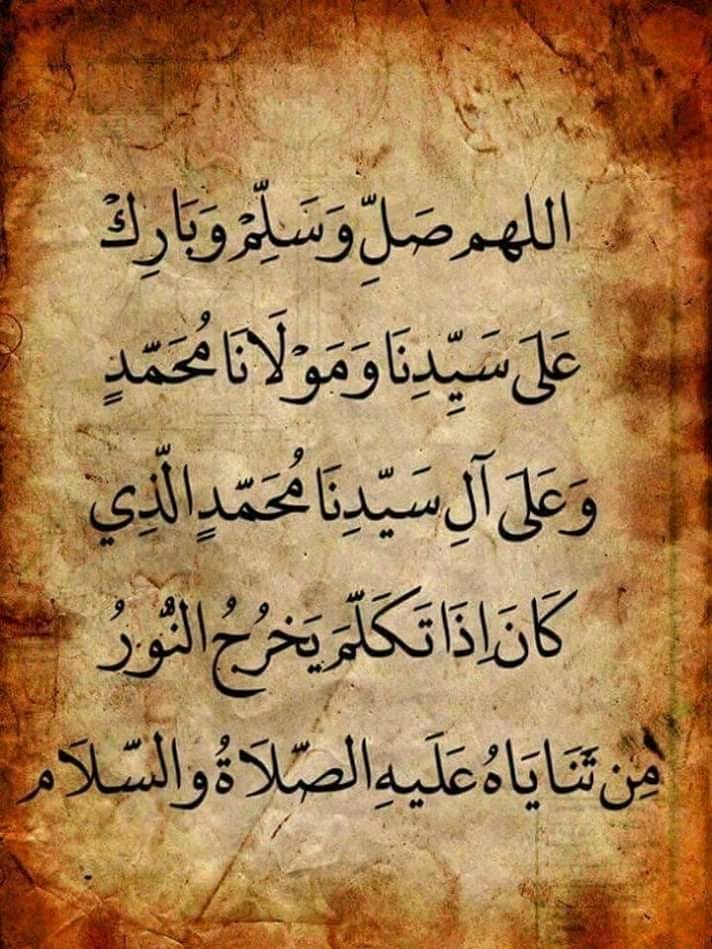 اللهم صَلِّ وَسَلِّمْ وَبَارِكْ
عَلَى سَيِّدِنَا وَمَوْلَانَا مُحَمَّدٍ
وَعَلَى آلِ سَيِّدِنَا مُحَمَّدٍ الَّذِي
كَانَ اِذَا تَكَلَّمَ يَخرُجُ النُّورُ
مِن ثَنَايَاهُ عَلَيهِ الصَّلَاةُ والسَّلَام